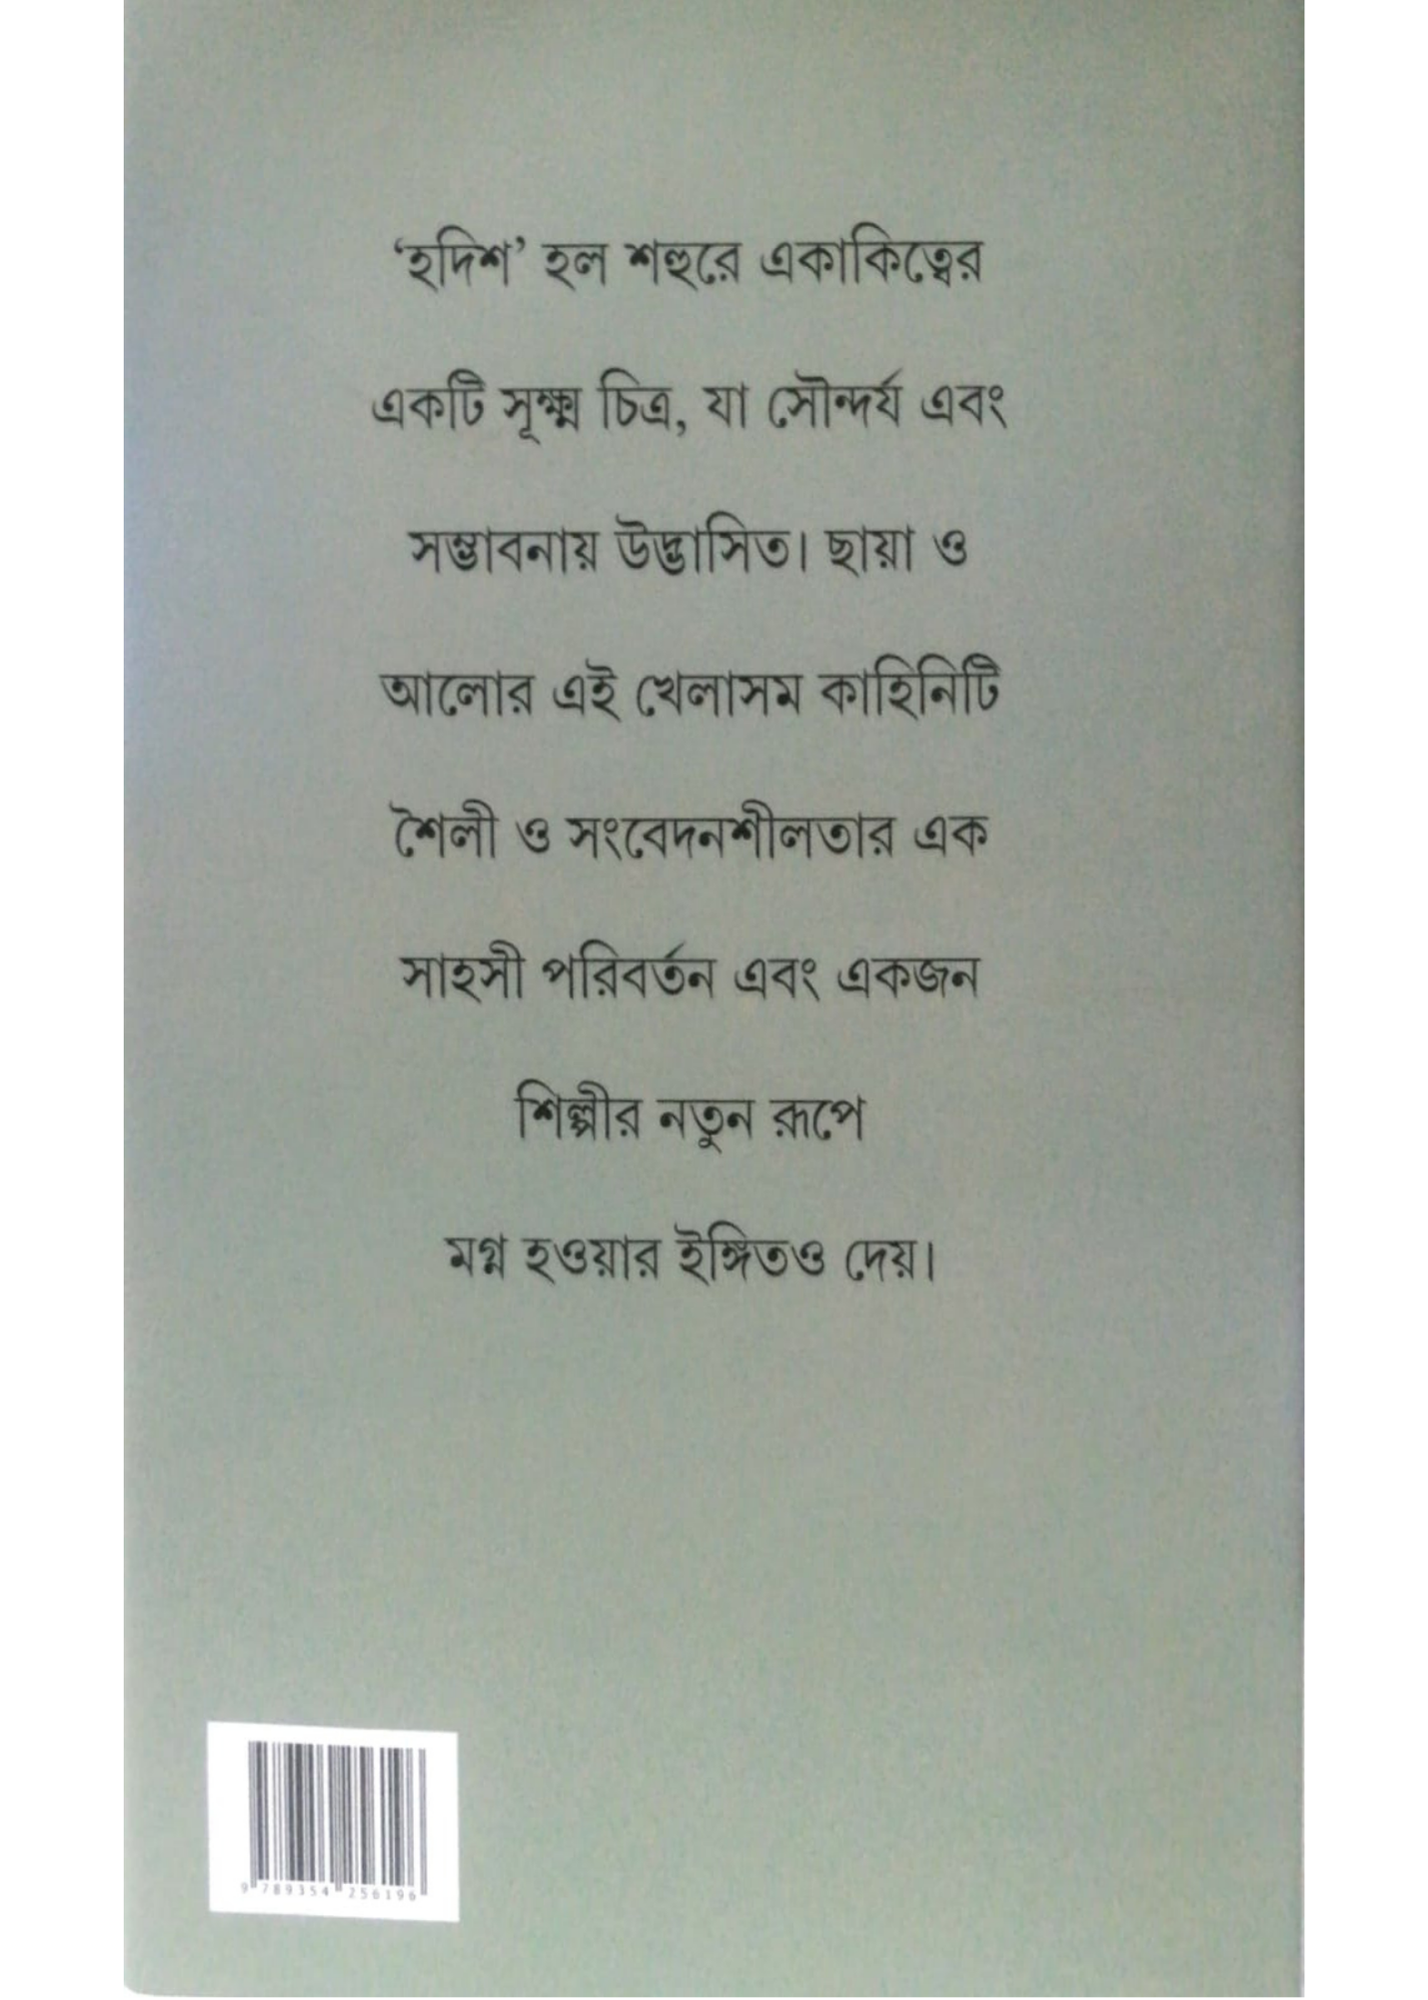 ‘হদিশ’ হল শহুরে একাকিত্বের
একটি সূক্ষ্ম চিত্র, যা সৌন্দর্য এবং
সম্ভাবনায় উদ্ভাসিত। ছায়া ও
আলোর এই খেলাসম কাহিনিটি
শৈলী ও সংবেদনশীলতার এক
সাহসী পরিবর্তন এবং একজন
শিল্পীর নতুন রূপে
মগ্ন হওয়ার ইঙ্গিতও দেয়।
9 789354 256196